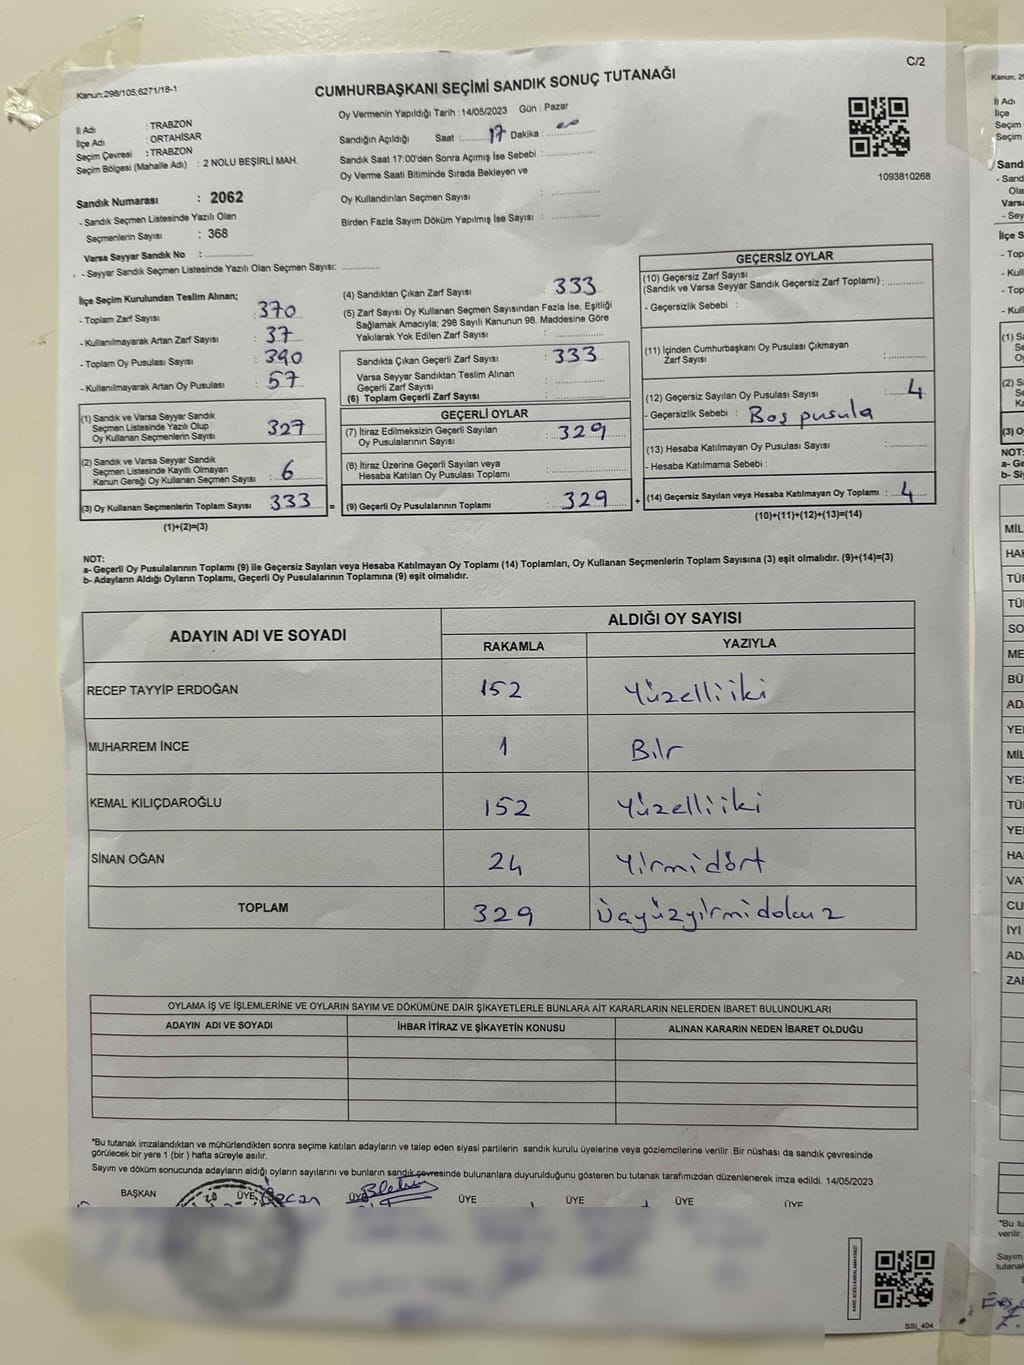 Kanun:298/105;6271/18-1
C/2
CUMHURBAŞKANI SEÇİMİ SANDIK SONUÇ TUTANAĞI
İl Adı : TRABZON
İlçe Adı : ORTAHİSAR
Seçim Çevresi : TRABZON
Seçim Bölgesi (Mahalle Adı) : 2 NOLU BEŞİRLİ MAH.
Sandık Numarası : 2062
- Sandık Seçmen Listesinde Yazılı Olan
Seçmenlerin Sayısı : 368
Varsa Seyyar Sandık No : ..............
- Seyyar Sandık Seçmen Listesinde Yazılı Olan Seçmen Sayısı: ............
Oy Vermenin Yapıldığı Tarih : 14/05/2023 Gün : Pazar
Sandığın Açıldığı Saat : 17 Dakika :
Sandık Saat 17:00'den Sonra Açımış İse Sebebi : ..............
Oy Verme Saati Bitiminde Sırada Bekleyen ve
Oy Kullandırılan Seçmen Sayısı : ..............
Birden Fazla Sayım Döküm Yapılmış İse Sayısı : ..............
1093810268
İlçe Seçim Kurulundan Teslim Alınan;
- Toplam Zarf Sayısı : 370
- Kullanılmayarak Artan Zarf Sayısı : 37
- Toplam Oy Pusulası Sayısı : 390
- Kullanılmayarak Artan Oy Pusulası : 57
(1) Sandık ve Varsa Seyyar Sandık
Seçmen Listesinde Yazılı Olup
Oy Kullanan Seçmenlerin Sayısı : 327
(2) Sandık ve Varsa Seyyar Sandık
Seçmen Listesinde Kayıtlı Olmayan
Kanun Gereği Oy Kullanan Seçmen Sayısı : 6
(3) Oy Kullanan Seçmenlerin Toplam Sayısı 333 =
(1)+(2)=(3)
(4) Sandıktan Çıkan Zarf Sayısı : 333
(5) Zarf Sayısı Oy Kullanan Seçmen Sayısından Fazla İse, Eşitliği
Sağlamak Amacıyla; 298 Sayılı Kanunun 98. Maddesine Göre
Yakılarak Yok Edilen Zarf Sayısı : ..............
Sandıkta Çıkan Geçerli Zarf Sayısı : 333
Varsa Seyyar Sandıktan Teslim Alınan
Geçerli Zarf Sayısı : ..............
(6) Toplam Geçerli Zarf Sayısı : ..............
GEÇERLİ OYLAR
(7) İtiraz Edilmeksizin Geçerli Sayılan
Oy Pusulalarının Sayısı : 329
(8) İtiraz Üzerine Geçerli Sayılan veya
Hesaba Katılan Oy Pusulası Toplamı : ..............
(9) Geçerli Oy Pusulalarının Toplamı : 329 +
GEÇERSİZ OYLAR
(10) Geçersiz Zarf Sayısı
(Sandık ve Varsa Seyyar Sandık Geçersiz Zarf Toplamı) : ..............
- Geçersizlik Sebebi :
(11) İçinden Cumhurbaşkanı Oy Pusulası Çıkmayan
Zarf Sayısı : ..............
(12) Geçersiz Sayılan Oy Pusulası Sayısı : 4
- Geçersizlik Sebebi : Boş pusula
(13) Hesaba Katılmayan Oy Pusulası Sayısı : ..............
- Hesaba Katılmama Sebebi :
(14) Geçersiz Sayılan veya Hesaba Katılmayan Oy Toplamı : 4
(10)+(11)+(12)+(13)=(14)
NOT:
a- Geçerli Oy Pusulalarının Toplamı (9) ile Geçersiz Sayılan veya Hesaba Katılmayan Oy Toplamı (14) Toplamları, Oy Kullanan Seçmenlerin Toplam Sayısına (3) eşit olmalıdır. (9)+(14)=(3)
b- Adayların Aldığı Oyların Toplamı, Geçerli Oy Pusulalarının Toplamına (9) eşit olmalıdır.
ADAYIN ADI VE SOYADI
ALDIĞI OY SAYISI
RAKAMLA YAZIYLA
RECEP TAYYİP ERDOĞAN 152 Yüzelliiki
MUHARREM İNCE 1 Bir
KEMAL KILIÇDAROĞLU 152 Yüzelliiki
SİNAN OĞAN 24 Yirmidört
TOPLAM 329 Üçyüzyirmidokuz
OYLAMA İŞ VE İŞLEMLERİNE VE OYLARIN SAYIM VE DÖKÜMÜNE DAİR ŞİKAYETLERLE BUNLARA AİT KARARLARIN NELERDEN İBARET BULUNDUKLARI
ADAYIN ADI VE SOYADI İHBAR İTİRAZ VE ŞİKAYETİN KONUSU ALINAN KARARIN NEDEN İBARET OLDUĞU
"Bu tutanak imzalandıktan ve mühürlendikten sonra seçime katılan adayların ve talep eden siyasi partilerin sandık kurulu üyelerine veya gözlemcilerine verilir .Bir nüshası da sandık çevresinde
görülecek bir yere 1 (bir ) hafta süreyle asılır.
Sayım ve döküm sonucunda adayların aldığı oyların sayılarını ve bunların sandık çevresinde bulunanlara duyurulduğunu gösteren bu tutanak tarafımızdan düzenlenerek imza edildi. 14/05/2023
BAŞKAN ÜYE ÜYE ÜYE ÜYE ÜYE ÜYE
SSI_404
Kanun, 29
İl Adı
İlçe
Seçim
Seçim
Sand
- Sand
Ola
Varsa
- Sey
İlçe S
- Top
- Kull
- Top
- Kull
(1) Sa
Se
Oy
(2) Sa
Se
Ka
(3) O
NOT:
a- Ge
b- Siy
MİL
HAK
TÜ
TÜ
SO
ME
BÜ
AD
YE
MİL
YE
TÜ
YE
HA
VA
CU
İYİ
AD
ZA
"Bu tu
verilir.
Sayım
tutanak